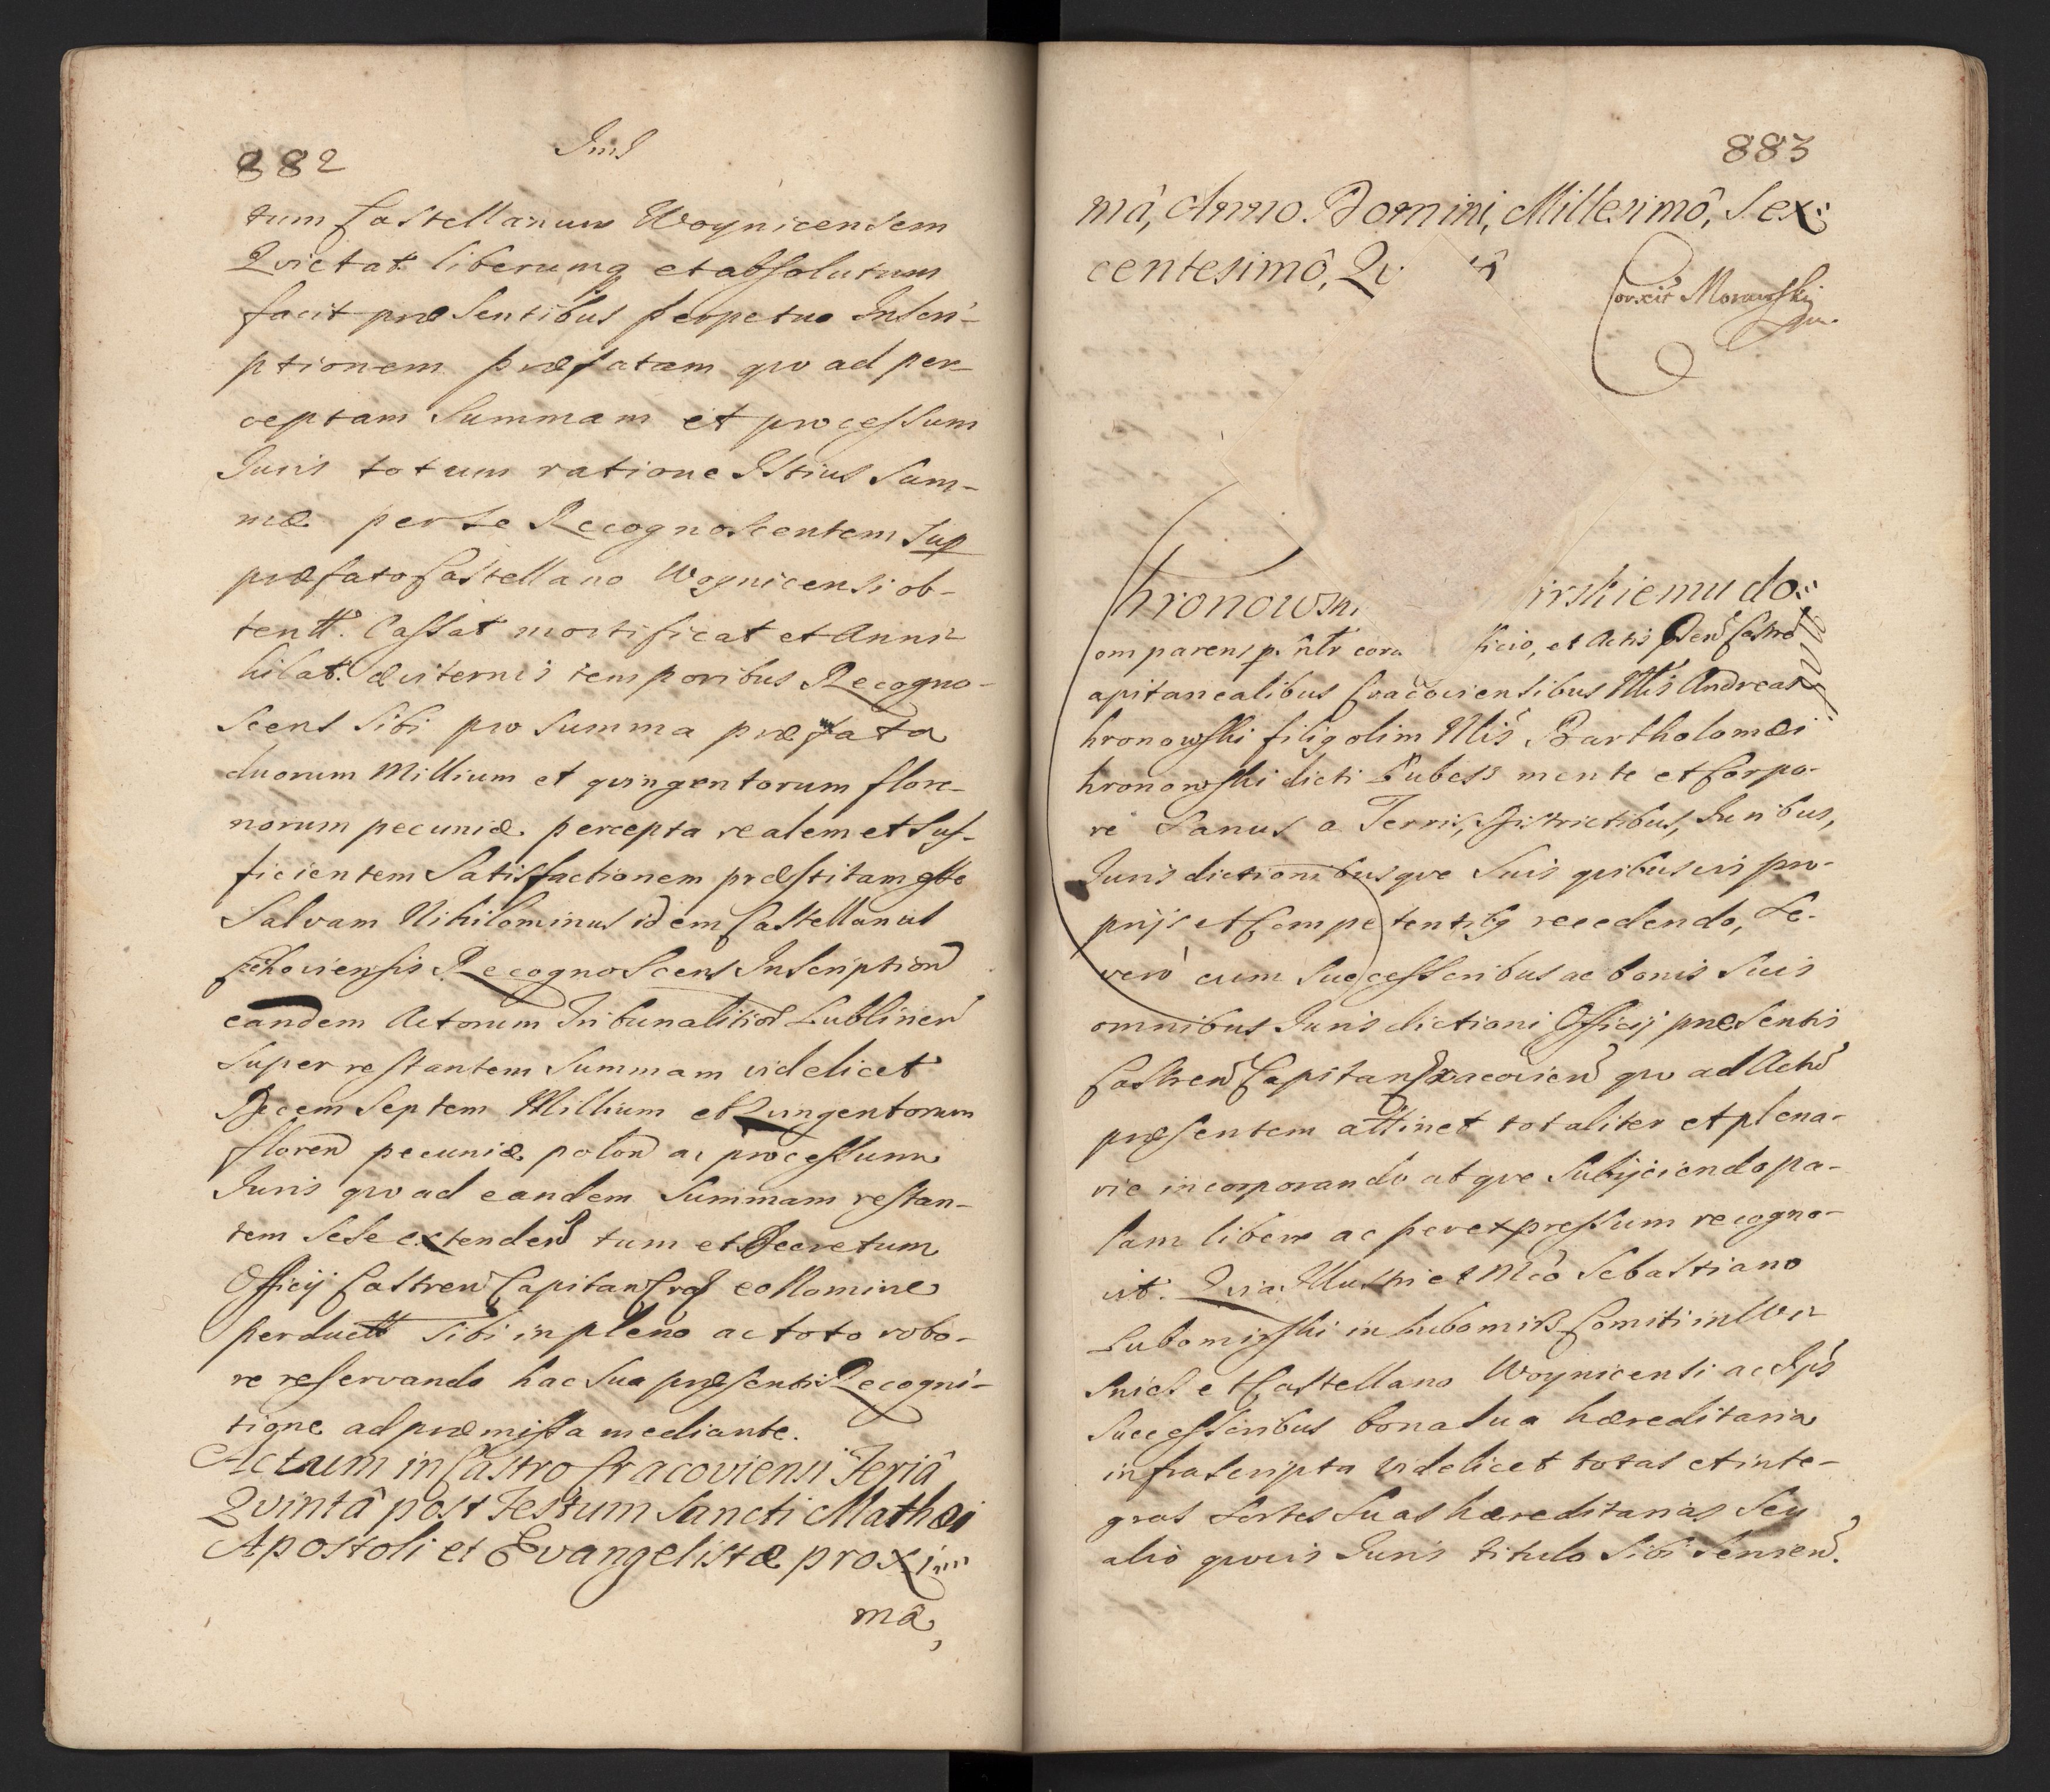 882
tum Castellanum Woynicensem
Qvietat liberumq et absolutum
facit præsentibus perpetuo Inscri-
ptionem præfatam qvo ad per-
ceptam Summam et processum
Juris totum ratione Istius Sum-
mæ per se Recognoscentem sup
præfato Castellano Woynicensi ob-
tentt. Cassat mortificat et Anni-
hilat. æviternis temporibus Recogno-
scens sibi pro summa præfata
duorum Millium et qvingentorum flore-
norum pecuniæ percepta realem et suf-
ficientem Satisfactionem præstitam
Salvam Nihilominus idem Castellanus
Recognoscens Inscription
eandem Actorum Tribunalitior Lublinen
super restantem Summam videlicet
Decem Septem Millium et Qvingentorum
floren pecuniæ polon ac processum
Juris qvo ad eandem Summam restan-
tem sese extenden tum et Decretum
Officij Castren Capitan Crac eo Nomine
perductt sibi in pleno ac toto robo-
re reservando hac sua præsenti Recogni-
tione ad præmissa mediante.
Actum in Castro Cracoviensi Feriâ
Qvintâ post Festum Sancti Mathæi
Apostoli et Evangelistæ proxi
mâ,
883
mâ, Anno Domini, Millesimô, Sex
centesimô, Qv
Corxit Morawski
hronows irskiemu do
omparens p. ntr cora ficio, et Actis Den Castren
apitanealibus Cracoviensibus Nlis Andreas
hronowski filig olim Nlis Bartholomæi
hronowski dicti Bubess mente et Corpo-
re Sanus a Terris, Districtibus, Juribus,
Jurisdictionibusqve Suis qvibusvis pro-
prijs et Competentibg recedendo, se
verò cum Successoribus ac bonis Suis
omnibus Jurisdictioni Officij præsentis
Castren Capitan Cracovien qvo ad Actu
præsentem attinet totaliter et plena-
rie incorporando atqve Subijciendo pa-
lam libere ac per expressum recogno-
vit. Qvia Illustri et Mco Sebastiano
Lubomirski in Lubomirs Comiti in Wi-
snics et Castellano Woynicensi ac Ips
Successoribus bona sua hæreditaria
infrascripta videlicet totas et inte-
gras Sortes Suas hæreditarias Seu
alio qvovis Juris titulo Sibi Servien.